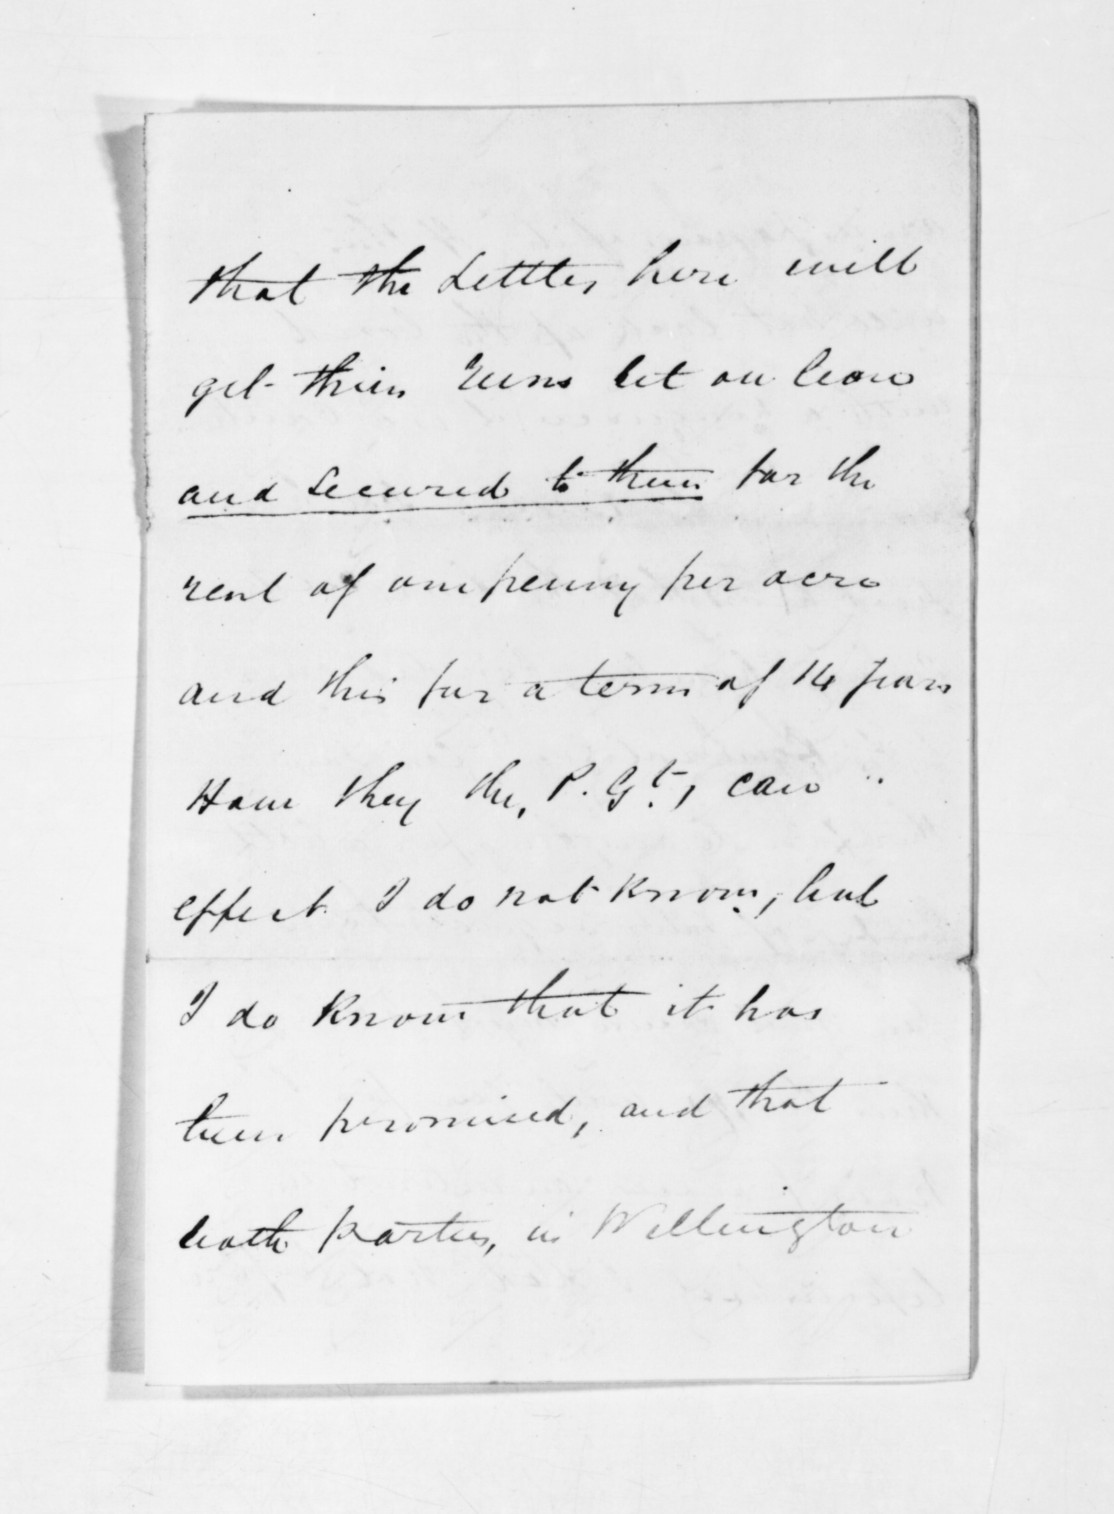 that the Settlers here will
get their runs let on lease
and secured to them for the
rent of one penny per acre
and this for a term of 14 Years
How they the, P. Gt, can
effect I do not know, but
I do know that it has
been promised, and that
both parties, in Wellington